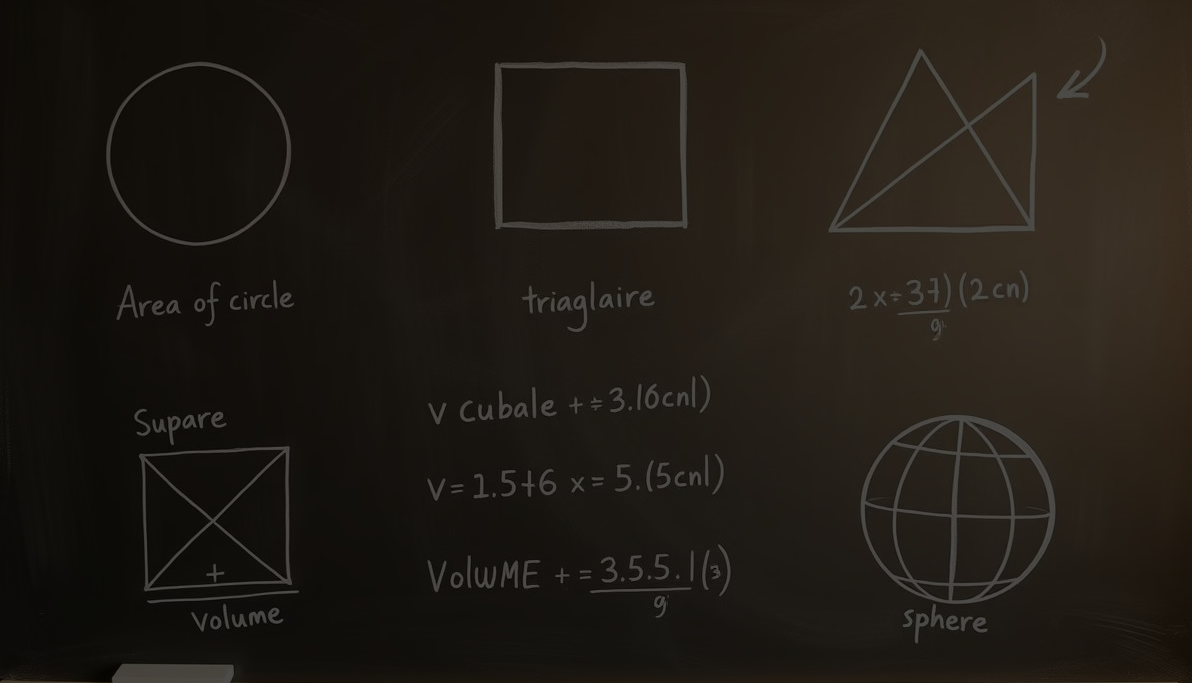 Area of circle
triaglaire
2 x÷37)(2cn)
9
Supare
+
Volume
V Cubale +÷3.16cnl)
V=1.5+6 x=5.(5cnl)
VolwME +=3.5.5.1(3)
9
sphere